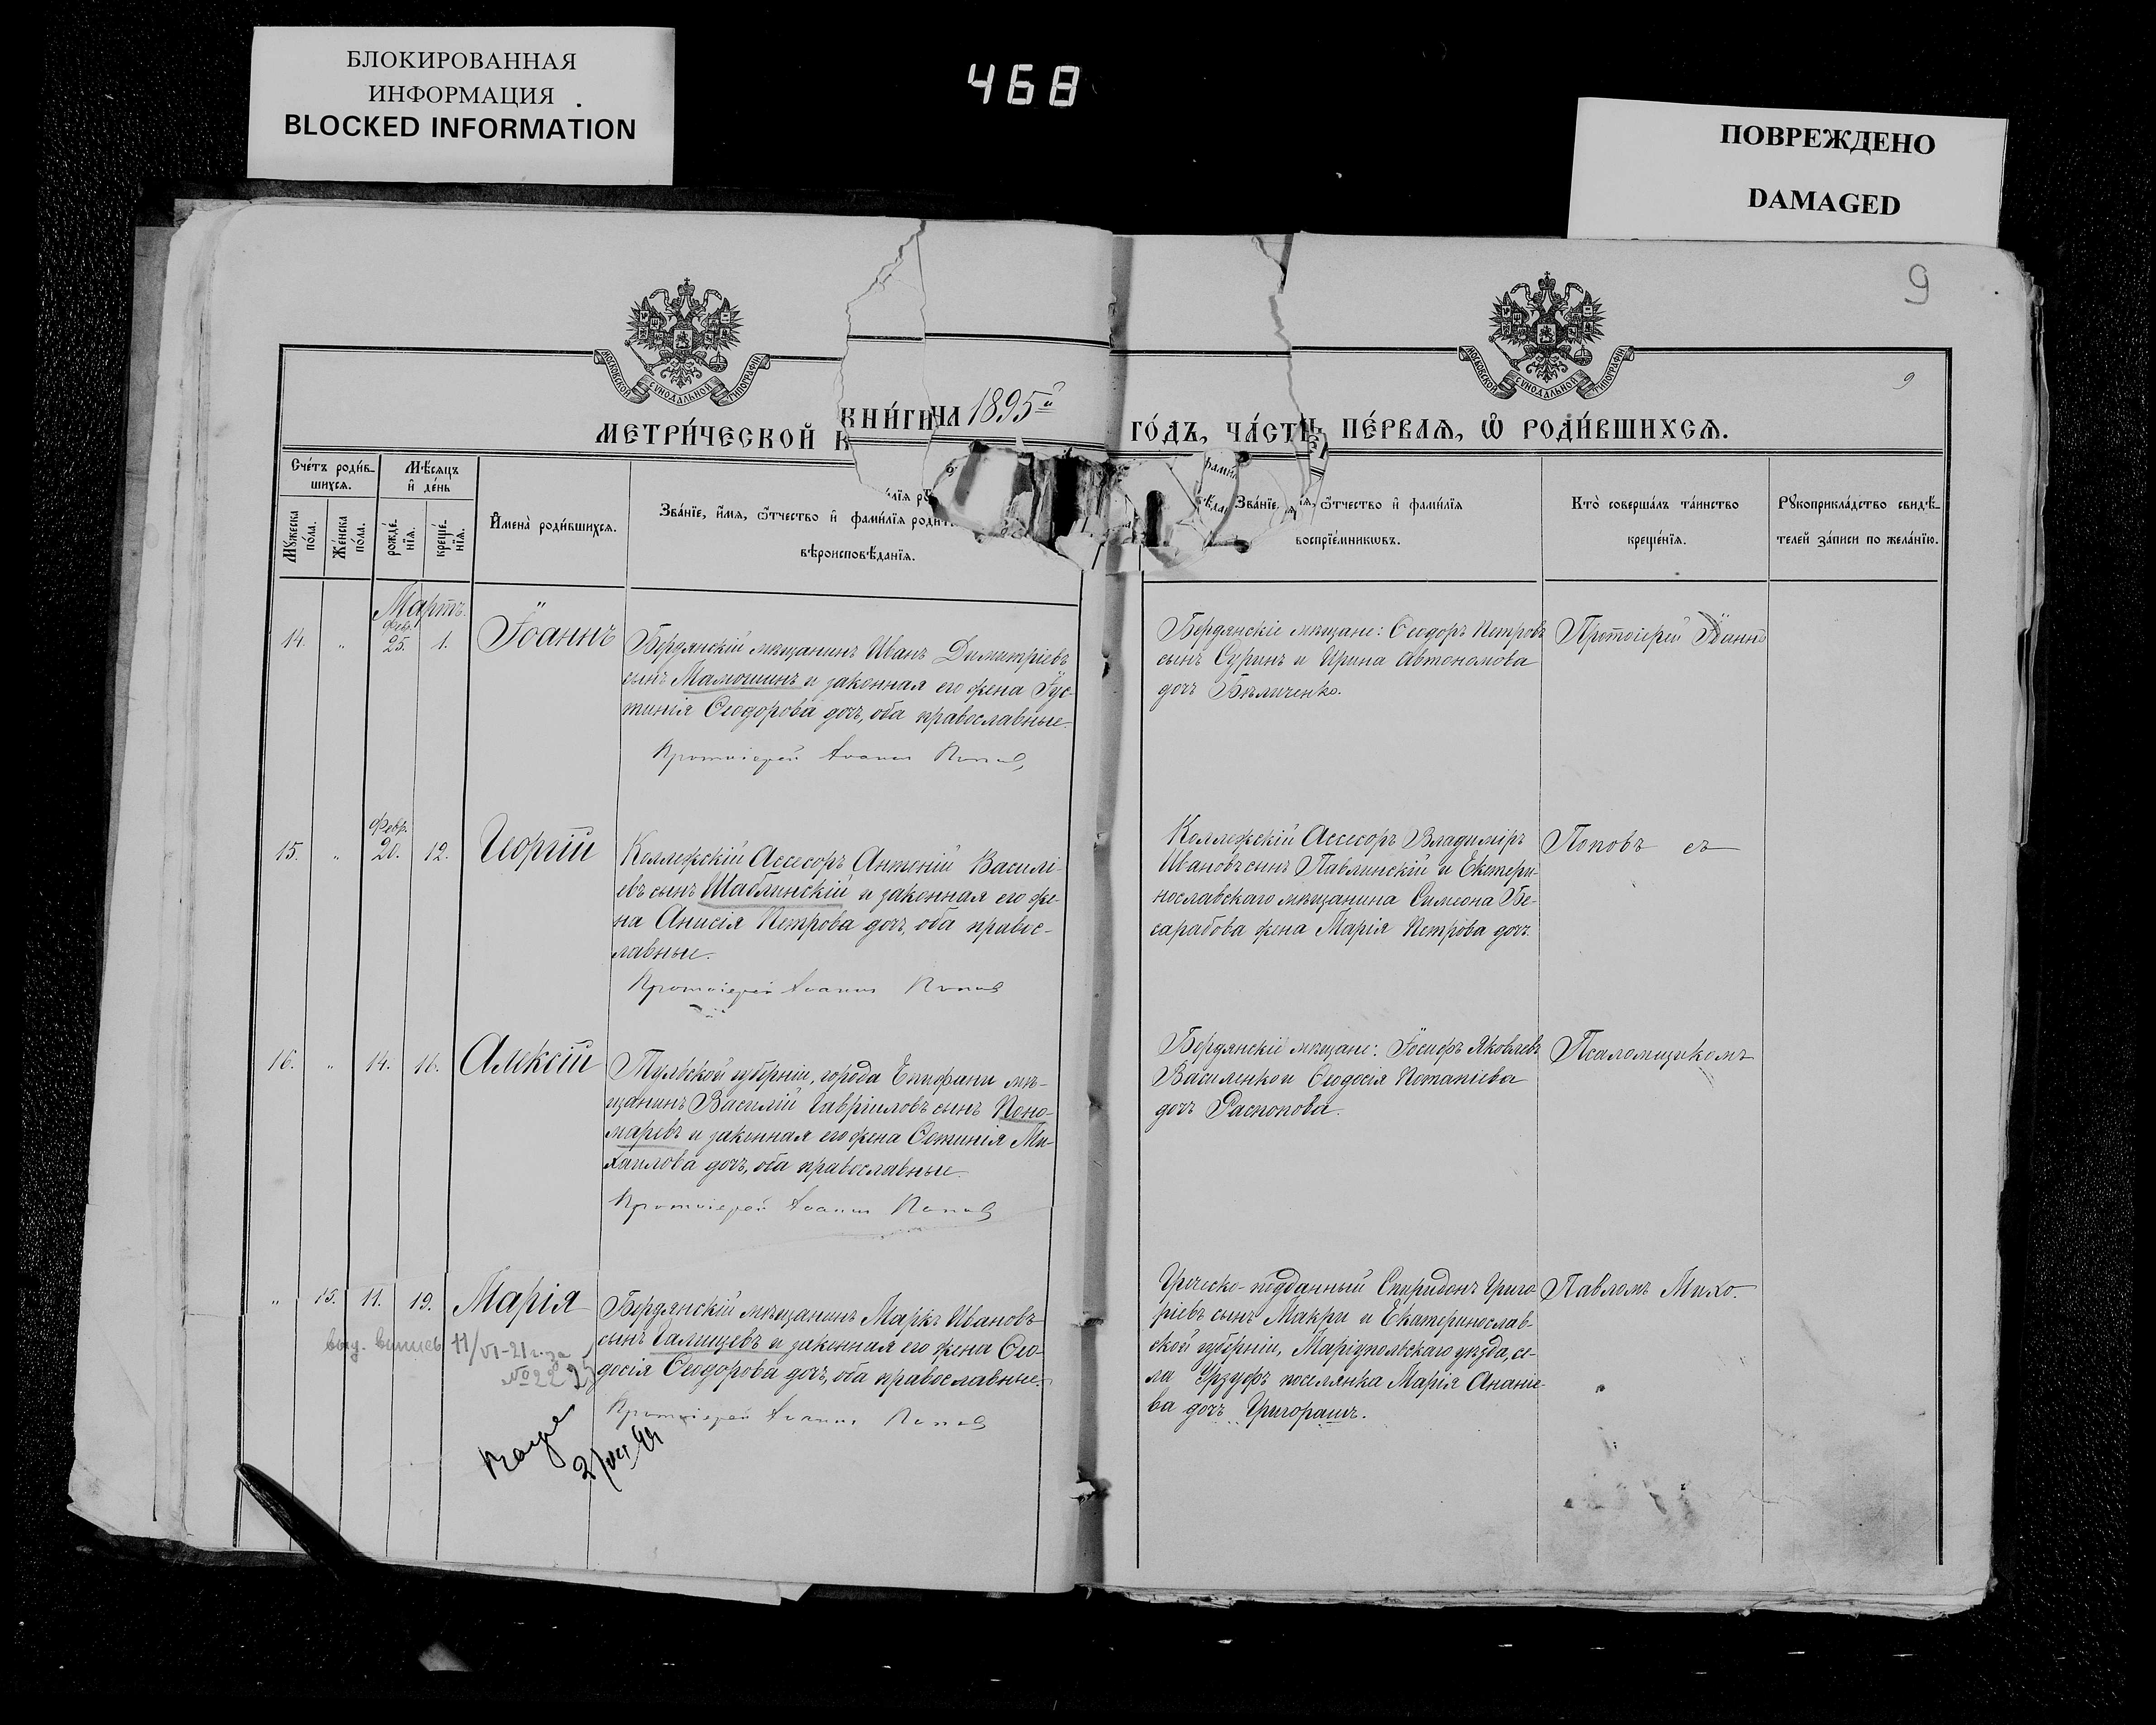 БЛОКИРОВАННАЯ
ИНФОРМАЦИЯ
BLOCKED INFORMATION
468
ПОВРЕЖДЕНО
DAMAGED
9
МОСКОВСКОЙ СѴНОДАЛЬНОЙ ТИПОГРАФІИ
МОСКОВСКОЙ СѴНОДАЛЬНОЙ ТИПОГРАФІИ
9
МЕТРИ́ЧЕСКОЙ КНИ́ГИ НА 1895й ГО́ДЪ, ЧА́СТЬ ПЕ́РВАЯ, Ѿ РОДИ́ВШИХСЯ.
Сче́тъ роди́в-
шихся.
Мꙋ́жеска по́ла.
Же́нска по́ла.
Мѣ́сяцъ
и҆ де́нь
рожде́нїя.
креще́нїя.
И҆мена̀ роди́вшихся.
Зва́нїе, и҆́мя, ѻ҆́тчество и҆ фами́лїя
вѣроисповѣ́данїя.
Зва́нїе, ѻ҆́тчество и҆ фами́лїя
воспрїе́мникѡвъ.
Кто̀ соверша́лъ та́инство
креще́нїя.
Рꙋкоприкла́дство свидѣ́-
телей за́писи по жела́нїю.
Мартъ.
14. " Февр. 25. 1. Іоаннъ
Бердянскій мѣщанинъ Иванъ Димитріевъ
сынъ Мамошинъ и законная его жена Іус-
тинія Ѳеодорова дочь, оба православные.
Протоіерей Іоаннъ Поповъ
Бердянскіе мѣщане: Ѳеодоръ Петровъ
сынъ Суринъ и Ирина Автономова
дочь Бѣличенко.
Протоіерей Іоаннъ
15. " Февр. 20. 12. Георгій
Коллежскій Ассесоръ Антоній Василі-
евъ сынъ Шаблинскій и законная его же-
на Анисія Петрова дочь, оба правос-
лавные.
Протоіерей Іоаннъ Поповъ
Коллежскій Ассесоръ Владиміръ
Ивановъ сынъ Павлинскій и Екатери-
нославскаго мѣщанина Симеона Бе-
сарабова жена Марія Петрова дочь.
Поповъ съ
16. " 14. 16. Алексій
Тульской губерніи, города Епифани мѣ-
щанинъ Василій Гавріиловъ сынъ Поно-
маревъ и законная его жена Ѳотинія Ми-
хаилова дочь, оба православные.
Протоіерей Іоаннъ Поповъ
Бердянскіе мѣщане: Іосифъ Яковлевъ
Василенко и Ѳеодосія Потапіева
дочь Распопова.
Псаломщикомъ
" 15. 11. 19. Марія
Бердянскій мѣщанинъ Маркъ Ивановъ
сынъ Галищевъ и законная его жена Ѳео-
досія Ѳеодорова дочь, оба православные.
Протоіерей Іоаннъ Поповъ
Греческо-подданный Спиридонъ Григо-
ріевъ сынъ Макри и Екатеринослав-
ской губерніи, Маріупольскаго уѣзда, се-
ла Урзуфъ поселянка Марія Ананіе-
ва дочь Григорашъ.
Павломъ Михо-
выд. выпись 11/VI-21 г. за
№ 2225